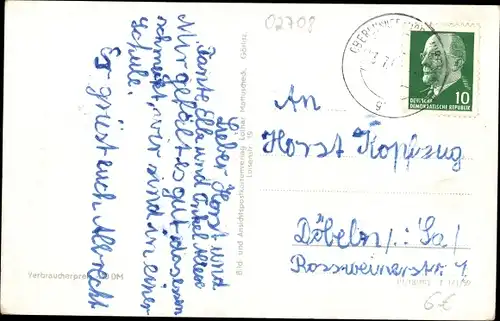 02708
Lieber Horst und
Tante Ella und Onkel
Mir gefällt es gut das essen
schmeckt, wir sind in einer
Schule.
Es grüst euch Albrecht
Verbraucherpreis DM
Bild und Ansichtspostkartenverlag Lothar Görlitz
DEUTSCHE
DEMOKRATISCHE REPUBLIK
10
An
Horst Kopfzug
Döbeln /: Sa/
Rossweinerstr. 1
6€